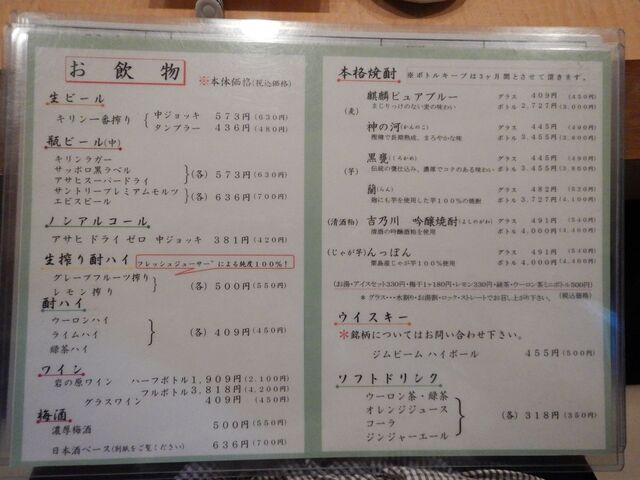 お飲物
※本体価格(税込価格)
生ビール
キリン一番搾り
中ジョッキ 573円(630円)
タンブラー 436円(480円)
瓶ビール(中)
キリンラガー
サッポロ黒ラベル
アサヒスーパードライ
(各) 573円(630円)
サントリープレミアムモルツ
エビスビール
(各) 636円(700円)
ノンアルコール
アサヒ ドライ ゼロ 中ジョッキ 381円(420円)
生搾り酎ハイ フレッシュジューサーによる純度100%!
グレープフルーツ搾り
レモン搾り
(各) 500円(550円)
酎ハイ
ウーロンハイ
ライムハイ
緑茶ハイ
(各) 409円(450円)
ワイン
岩の原ワイン ハーフボトル 1,909円(2,100円)
フルボトル 3,818円(4,200円)
グラスワイン 409円(450円)
梅酒
濃厚梅酒 500円(550円)
日本酒ベース(別紙をご覧ください) 636円(700円)
本格焼酎 ※ボトルキープは3ヶ月間とさせて頂きます。
(麦)
麒麟ピュアブルー グラス 409円(450円)
まじりっけのない麦の味わい ボトル 2,727円(3,000円)
神の河(かんのこ) グラス 445円(490円)
樫樽で長期熟成、まろやかな味 ボトル 3,455円(3,800円)
(芋)
黒甕(くろかめ) グラス 445円(490円)
伝統の甕仕込み、濃厚でコクのある味わい ボトル 3,455円(3,800円)
蘭(らん) グラス 482円(530円)
麹にも芋を使用した芋100%の焼酎 ボトル 3,727円(4,100円)
(清酒粕) 吉乃川 吟醸焼酎(よしのがわ) グラス 491円(540円)
清酒の吟醸酒粕を使用 ボトル 4,000円(4,400円)
(じゃが芋)んっぽん グラス 491円(540円)
栗島産じゃが芋100%使用 ボトル 4,000円(4,400円)
(お湯・アイスセット330円・梅干1ヶ180円・レモン330円・緑茶・ウーロン茶ミニボトル500円)
＊グラス・・・水割り・お湯割・ロック・ストレートでお召し上がり下さい。 (税込価格)
ウイスキー
＊銘柄についてはお問い合わせ下さい。
ジムビーム ハイボール 455円(500円)
ソフトドリンク
ウーロン茶・緑茶
オレンジジュース
コーラ
ジンジャーエール
(各) 318円(350円)